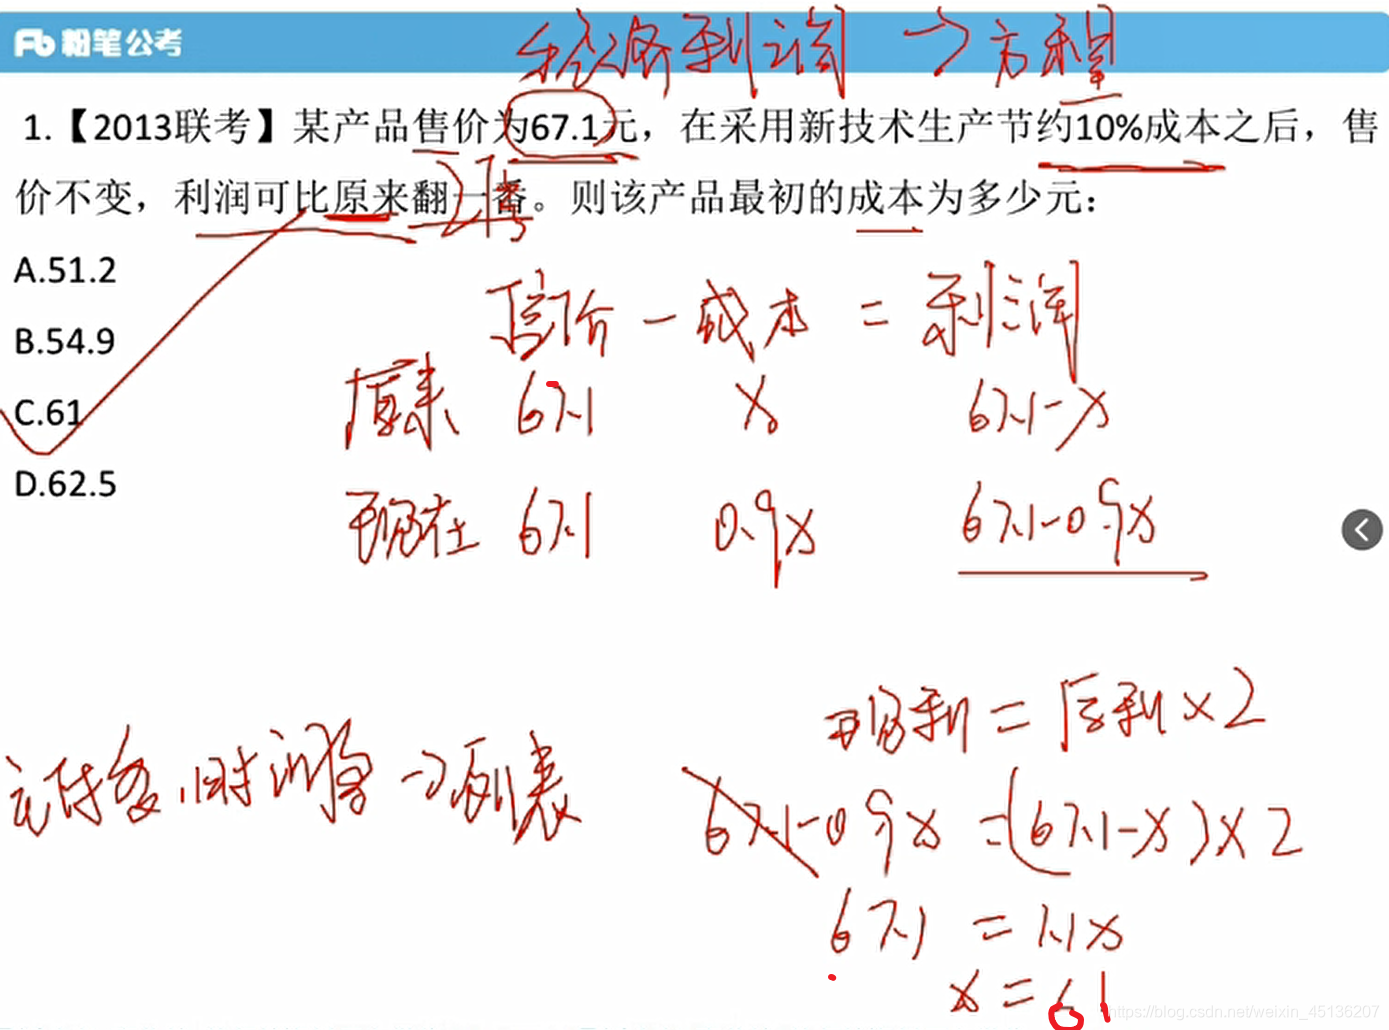 粉笔公考
经济利润 → 方程
1.【2013联考】某产品售价为67.1元，在采用新技术生产节约10%成本之后，售
价不变，利润可比原来翻一番。则该产品最初的成本为多少元：
2倍
A.51.2
B.54.9
C.61
D.62.5
售价 － 成本 = 利润
原来 67.1 x 67.1-x
现在 67.1 0.9x 67.1-0.9x
现利 = 原利×2
→列表
67.1-0.9x =(67.1-x)×2
67.1 = 1.1x
x = 61
https://blog.csdn.net/weixin_45136207